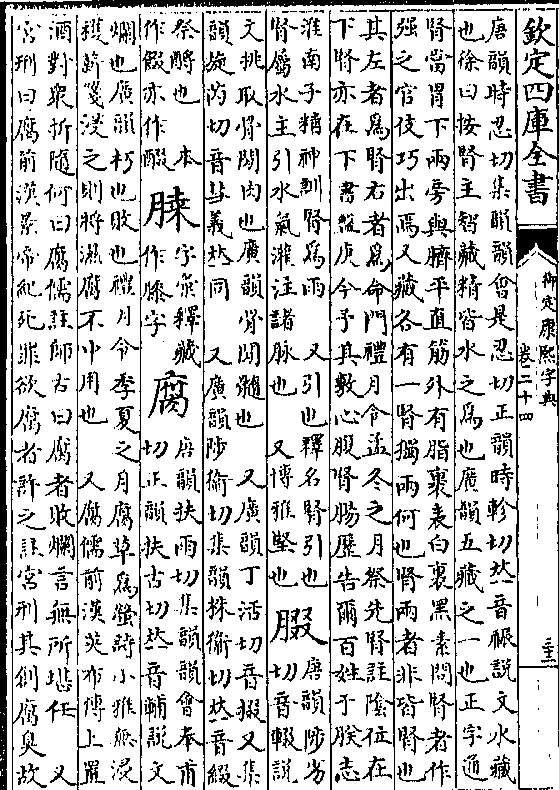 欽定四庫全書
御定康熙字典
卷二十四
三十二
唐韻時忍切集韻韻會是忍切正韻時軫切𠀤音脤說文水藏
也徐曰按腎主智藏精皆水之為也廣韻五藏之一也正字通
腎當胃下兩旁與臍平直筋外有脂裹表白裏黑素問腎者作
强之官伎巧出焉又藏各有一腎獨兩何也腎兩者非皆腎也
其左者為腎右者為命門禮月令孟冬之月祭先腎註陰位在
下腎亦在下書盤庚今予其敷心腹腎腸歷告爾百姓于朕志
淮南子精神訓腎為雨 又引也釋名腎引也
腎屬水主引水氣灌注諸脉也 又博雅堅也 腏 唐韻陟劣
切音輟說
文挑取骨間肉也廣韻骨間髓也 又廣韻丁活切音掇又集
韻旋芮切音彗義𠀤同 又廣韻陟衞切集韻株衞切𠀤音綴
祭酹也 本
作餟亦作醊 腞 字彙釋藏
作滕字 腐 唐韻扶雨切集韻韻會奉甫
切正韻扶古切𠀤音輔說文
爛也廣韻朽也敗也禮月令季夏之月腐草為螢詩小雅無浸
穫薪箋浸之則將濕腐不中用也 又腐儒前漢英布傳上置
酒對衆折隨何曰腐儒註師古曰腐者敗爛言無所堪任 又
宮刑曰腐前漢景帝紀死罪欲腐者許之註宮刑其創腐臭故